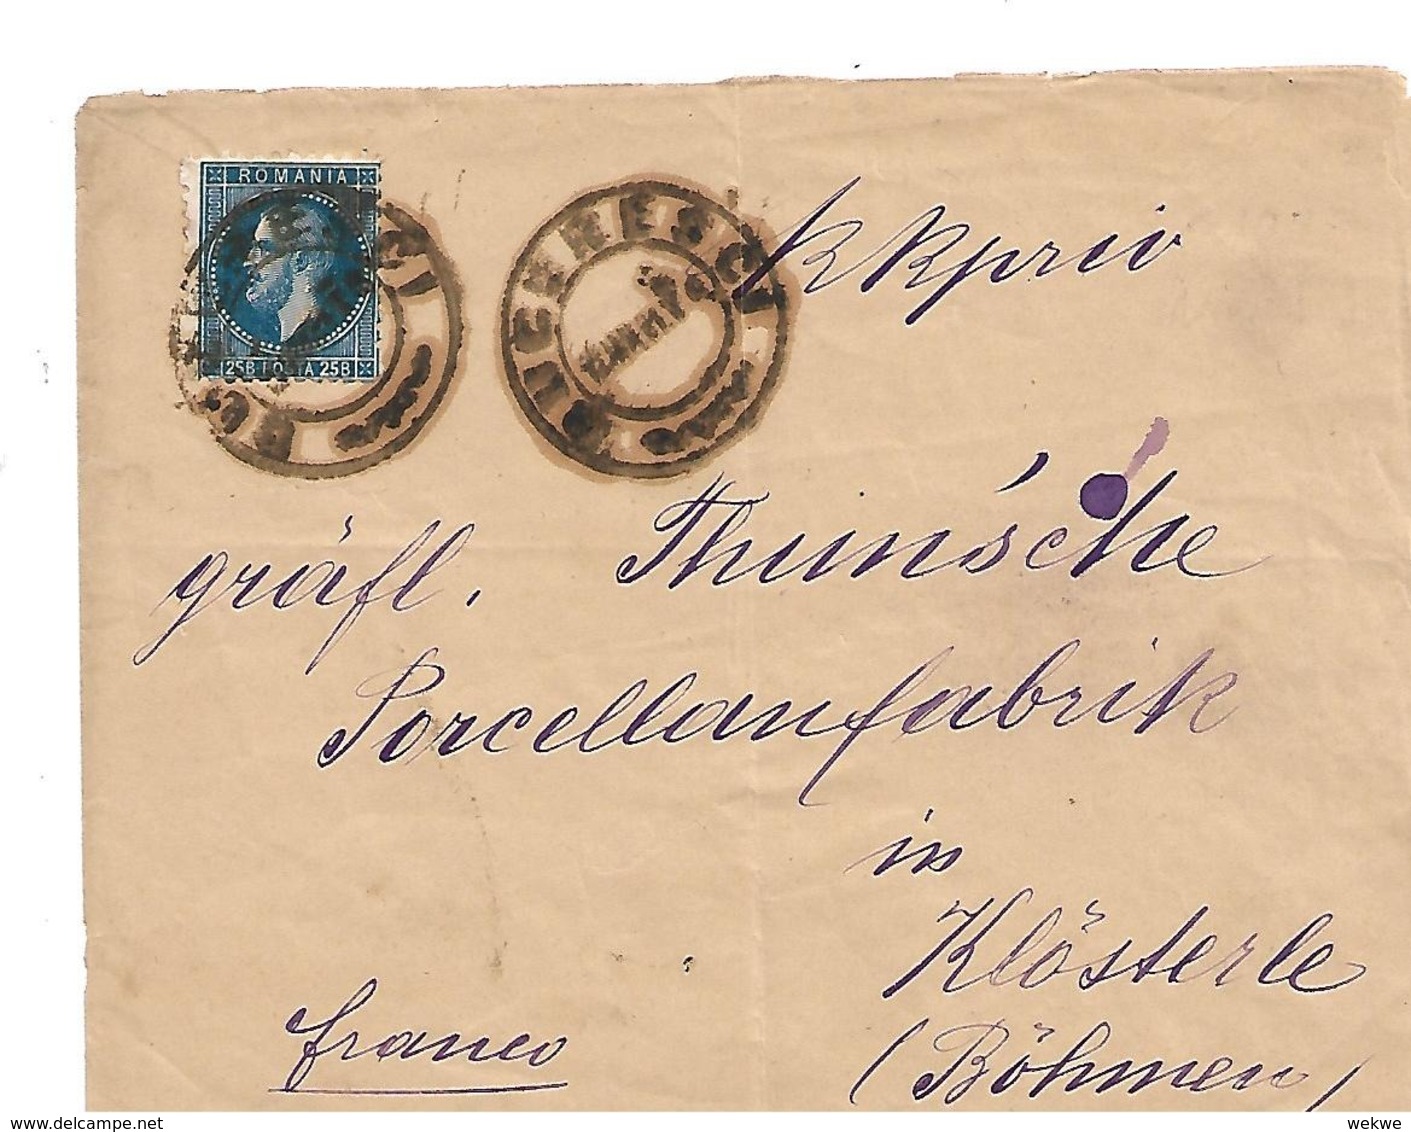 ROMANIA
25B POSTA 25B
BUCURESCI
BUCURESCI
KKpriv
gräfl. Thun'sche
Porcellanfabrik
in
Klösterle
(Böhmen)
franco
www.delcampe.net
wekwe